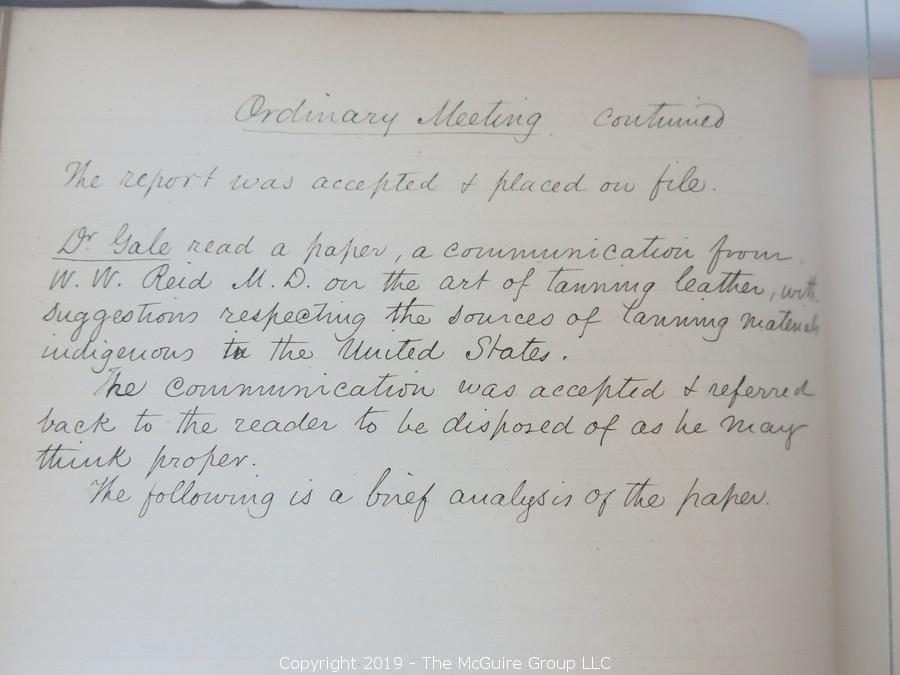 Ordinary Meeting. continued
The report was accepted & placed on file.
Dr Gale read a paper, a communication from
W. W. Reid M. D. on the art of tanning leather, with
suggestions respecting the sources of tanning materials
indigenous to the United States.
The communication was accepted & referred
back to the reader to be disposed of as he may
think proper.
The following is a brief analysis of the paper.
Copyright 2019 - The McGuire Group LLC